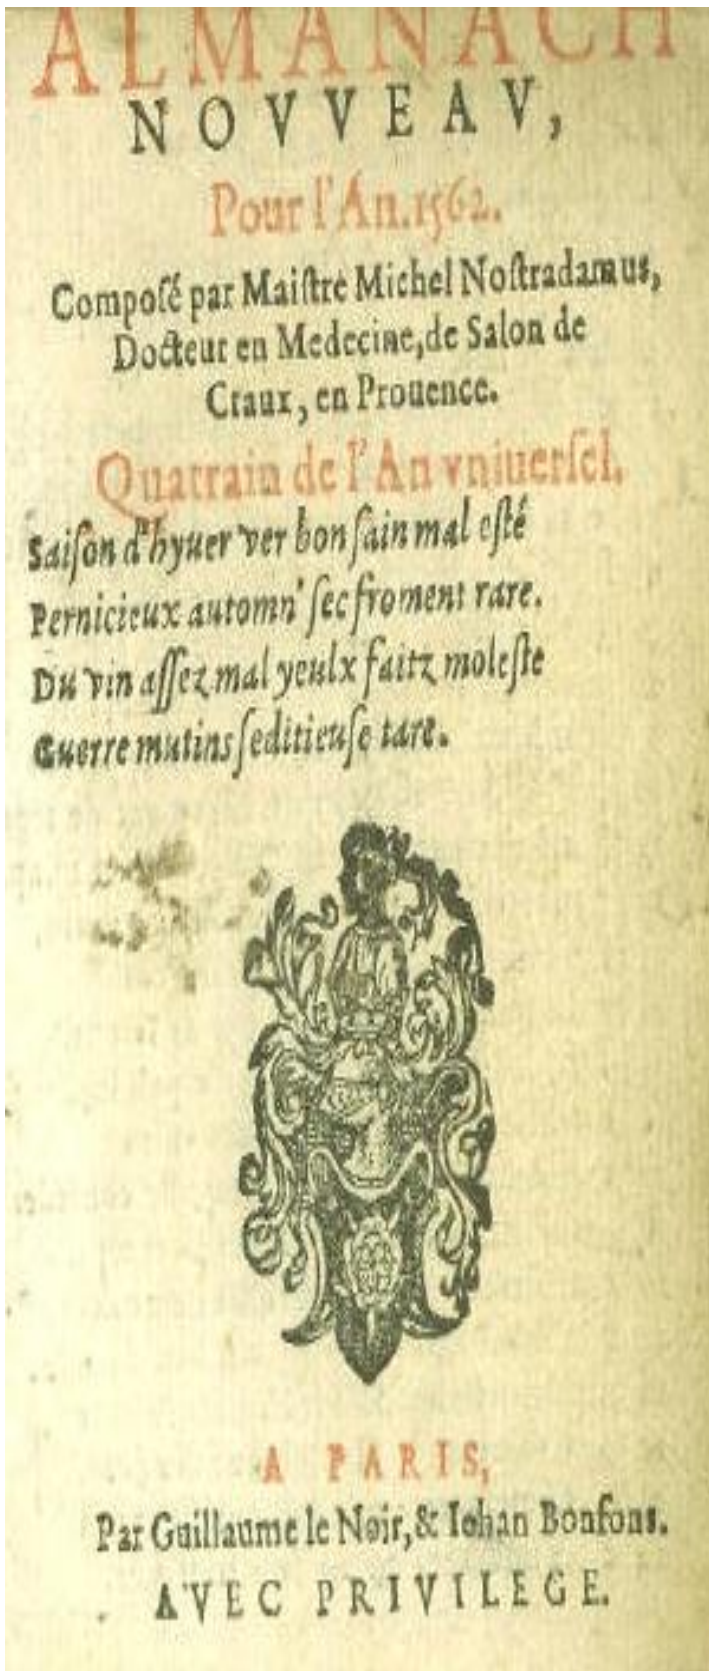 ALMANACH
NOVVEAV,
Pour l'An.1562.
Compoſé par Maiſtre Michel Noſtradamus,
Docteur en Medecine,de Salon de
Craux, en Prouence.
Quatrain de l'An vniuerſel.
Saiſon d'hyuer ver bon ſain mal eſté
Pernicieux automn' ſec froment rare.
Du vin aſſez mal yeulx faitz moleſte
Guerre mutins ſeditieuſe tare.
A PARIS,
Par Guillaume le Noir,& Iehan Bonfons.
AVEC PRIVILEGE.